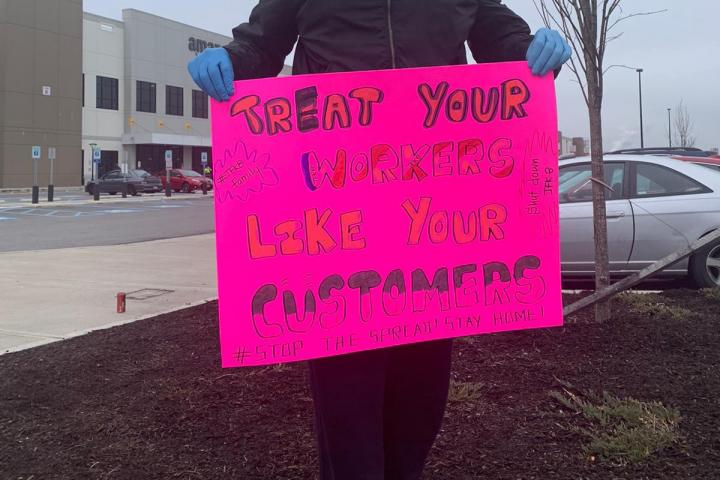 TREAT YOUR
WORKERS
LIKE YOUR
CUSTOMERS
#STOP THE SPREAD! STAY HOME!
family
Shut down
JFK8